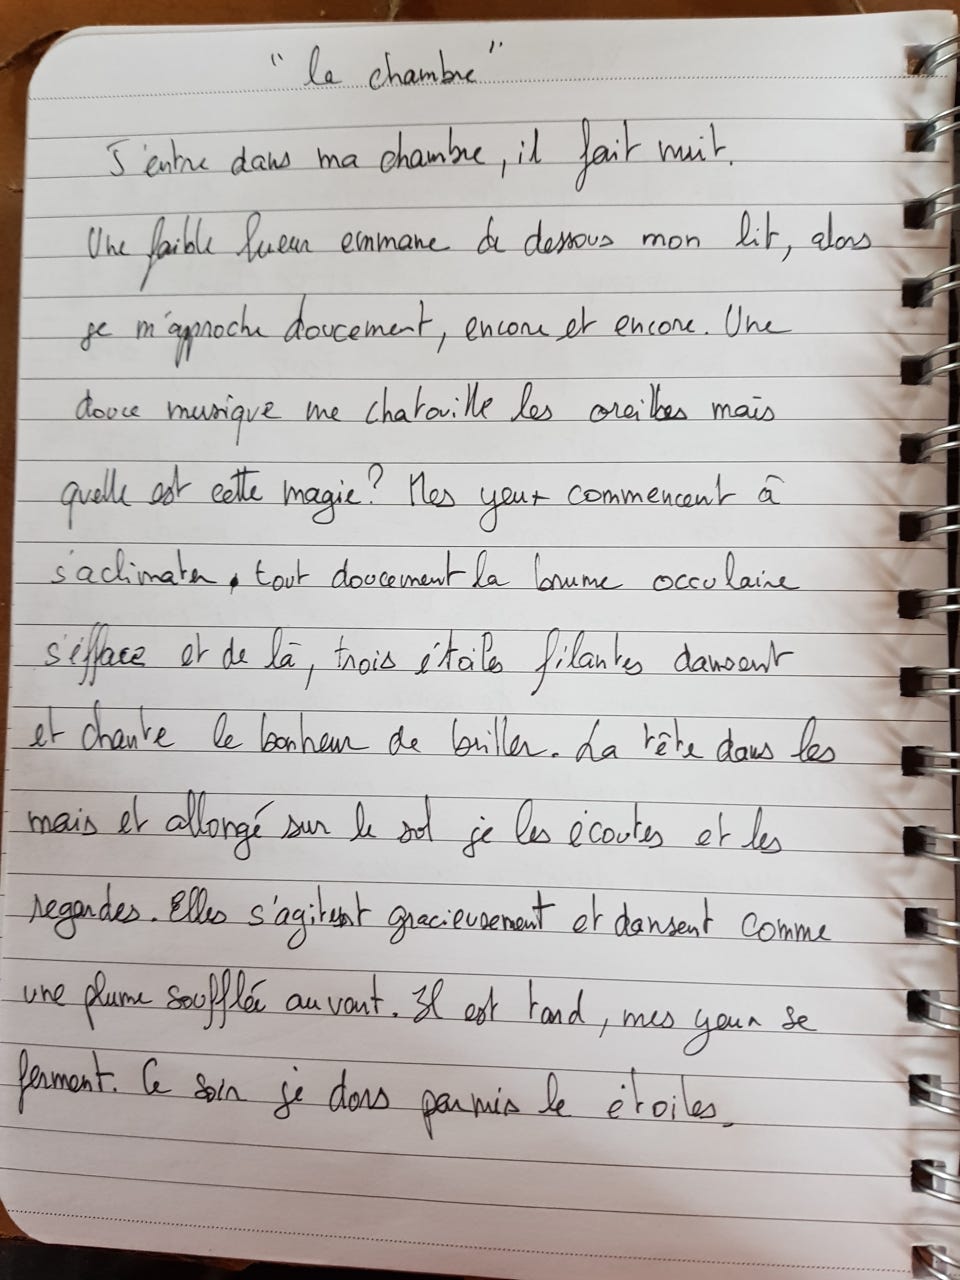 "la chambre"
J'entre dans ma chambre, il fait nuit.
Une faible lueur emmane de dessous mon lit, alors
je m'approche doucement, encore et encore. Une
douce musique me chatouille les oreilles mais
quelle est cette magie? Mes yeux commencent à
s'aclimater, tout doucement la brume occulaire
s'éfface et de là, trois étoiles filantes dansent
et chante le bonheur de briller. La tête dans les
mais et allongé sur le sol je les écoutes et les
regardes. Elles s'agitent gracieusement et dansent comme
une plume soufflée au vent. Il est tard, mes yeux se
ferment. Ce soir je dors parmis le étoiles.